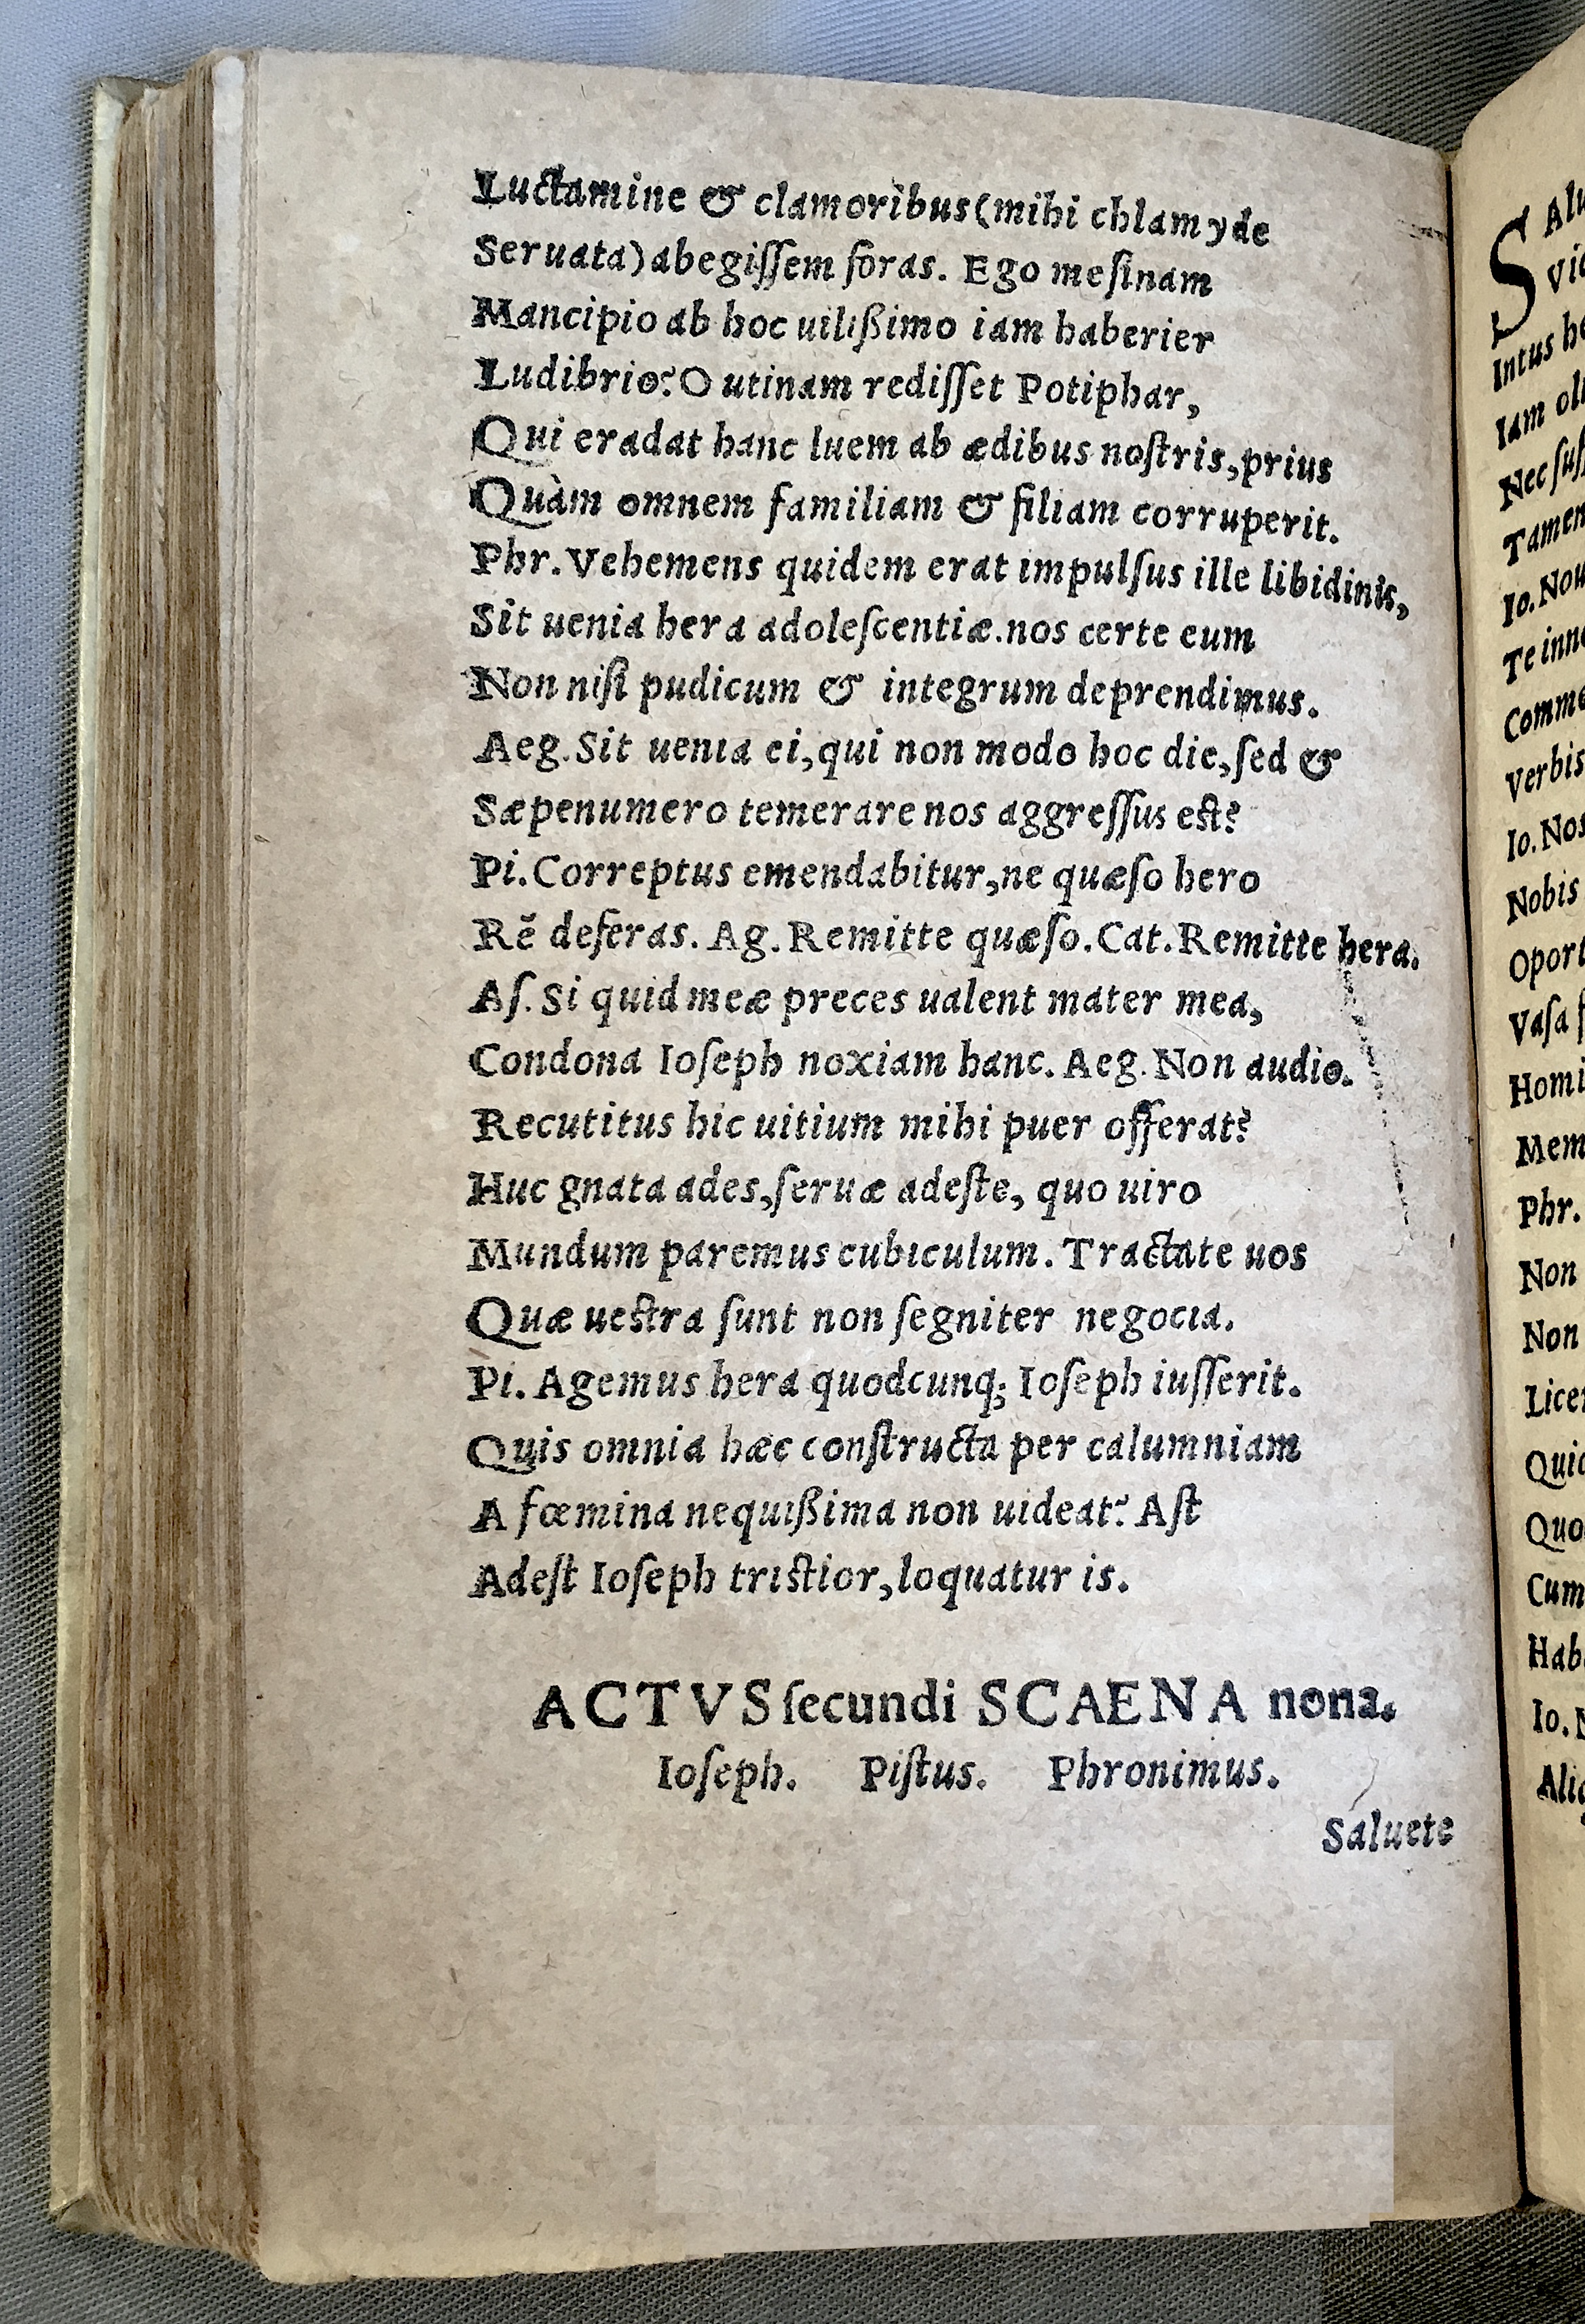 Luctamine & clamoribus (mihi chlamyde
Seruata) abegiſſem foras. Ego me ſinam
Mancipio ab hoc uilißimo iam haberier
Ludibrio? O utinam rediſſet Potiphar,
Qui eradat hanc luem ab ædibus noſtris, prius
Quàm omnem familiam & filiam corruperit.
Phr. Vehemens quidem erat impulſus ille libidinis,
Sit uenia hera adoleſcentiæ. nos certe eum
Non niſi pudicum & integrum deprendimus.
Aeg. Sit uenia ei, qui non modo hoc die, ſed &
Sæpenumero temerare nos aggreſſus eſt?
Pi. Correptus emendabitur, ne quæſo hero
Rē deferas. Ag. Remitte quæſo. Cat. Remitte hera.
Aſ. Si quid meæ preces ualent mater mea,
Condona Ioſeph noxiam hanc. Aeg. Non audio.
Recutitus hic uitium mihi puer offerat?
Huc gnata ades, ſeruæ adeſte, quo uiro
Mundum paremus cubiculum. Tractate uos
Quæ ueſtra ſunt non ſegniter negocia.
Pi. Agemus hera quodcunq; Ioſeph iuſſerit.
Quis omnia hæc conſtructa per calumniam
A fœmina nequißima non uideat? Aſt
Adeſt Ioſeph triſtior, loquatur is.
ACTVS ſecundi SCAENA nona.
Ioſeph. Piſtus. Phronimus.
Saluete
S Alu
vi
Intus he
Iam oli
Nec ſuſ
Tamen
Io. Nou
Te inno
Comme
Verbis
Io. Nos
Nobis
Oport
Vaſa ſ
Homi
Mem
Phr.
Non
Non
Licet
Quid
Quo
Cum
Hab
Io. N
Aliq